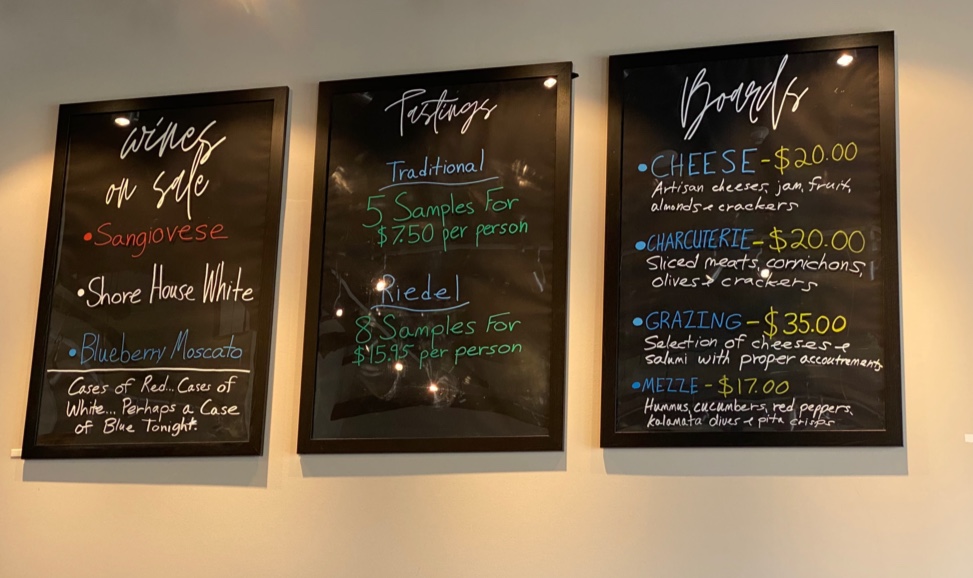 wines
on sale
• Sangiovese
• Shore House White
• Blueberry Moscato
Cases of Red... Cases of
White... Perhaps a Case
of Blue Tonight.
Tastings
Traditional
5 Samples For
$7.50 per person
Riedel
8 Samples For
$15.95 per person
Boards
• CHEESE - $20.00
Artisan cheeses, jam, fruit,
almonds & crackers
• CHARCUTERIE - $20.00
Sliced meats, cornichons,
olives & crackers
• GRAZING - $35.00
Selection of cheeses &
salami with proper accoutrements
• MEZZE - $17.00
Hummus, cucumbers, red peppers,
kalamata olives & pita crisps